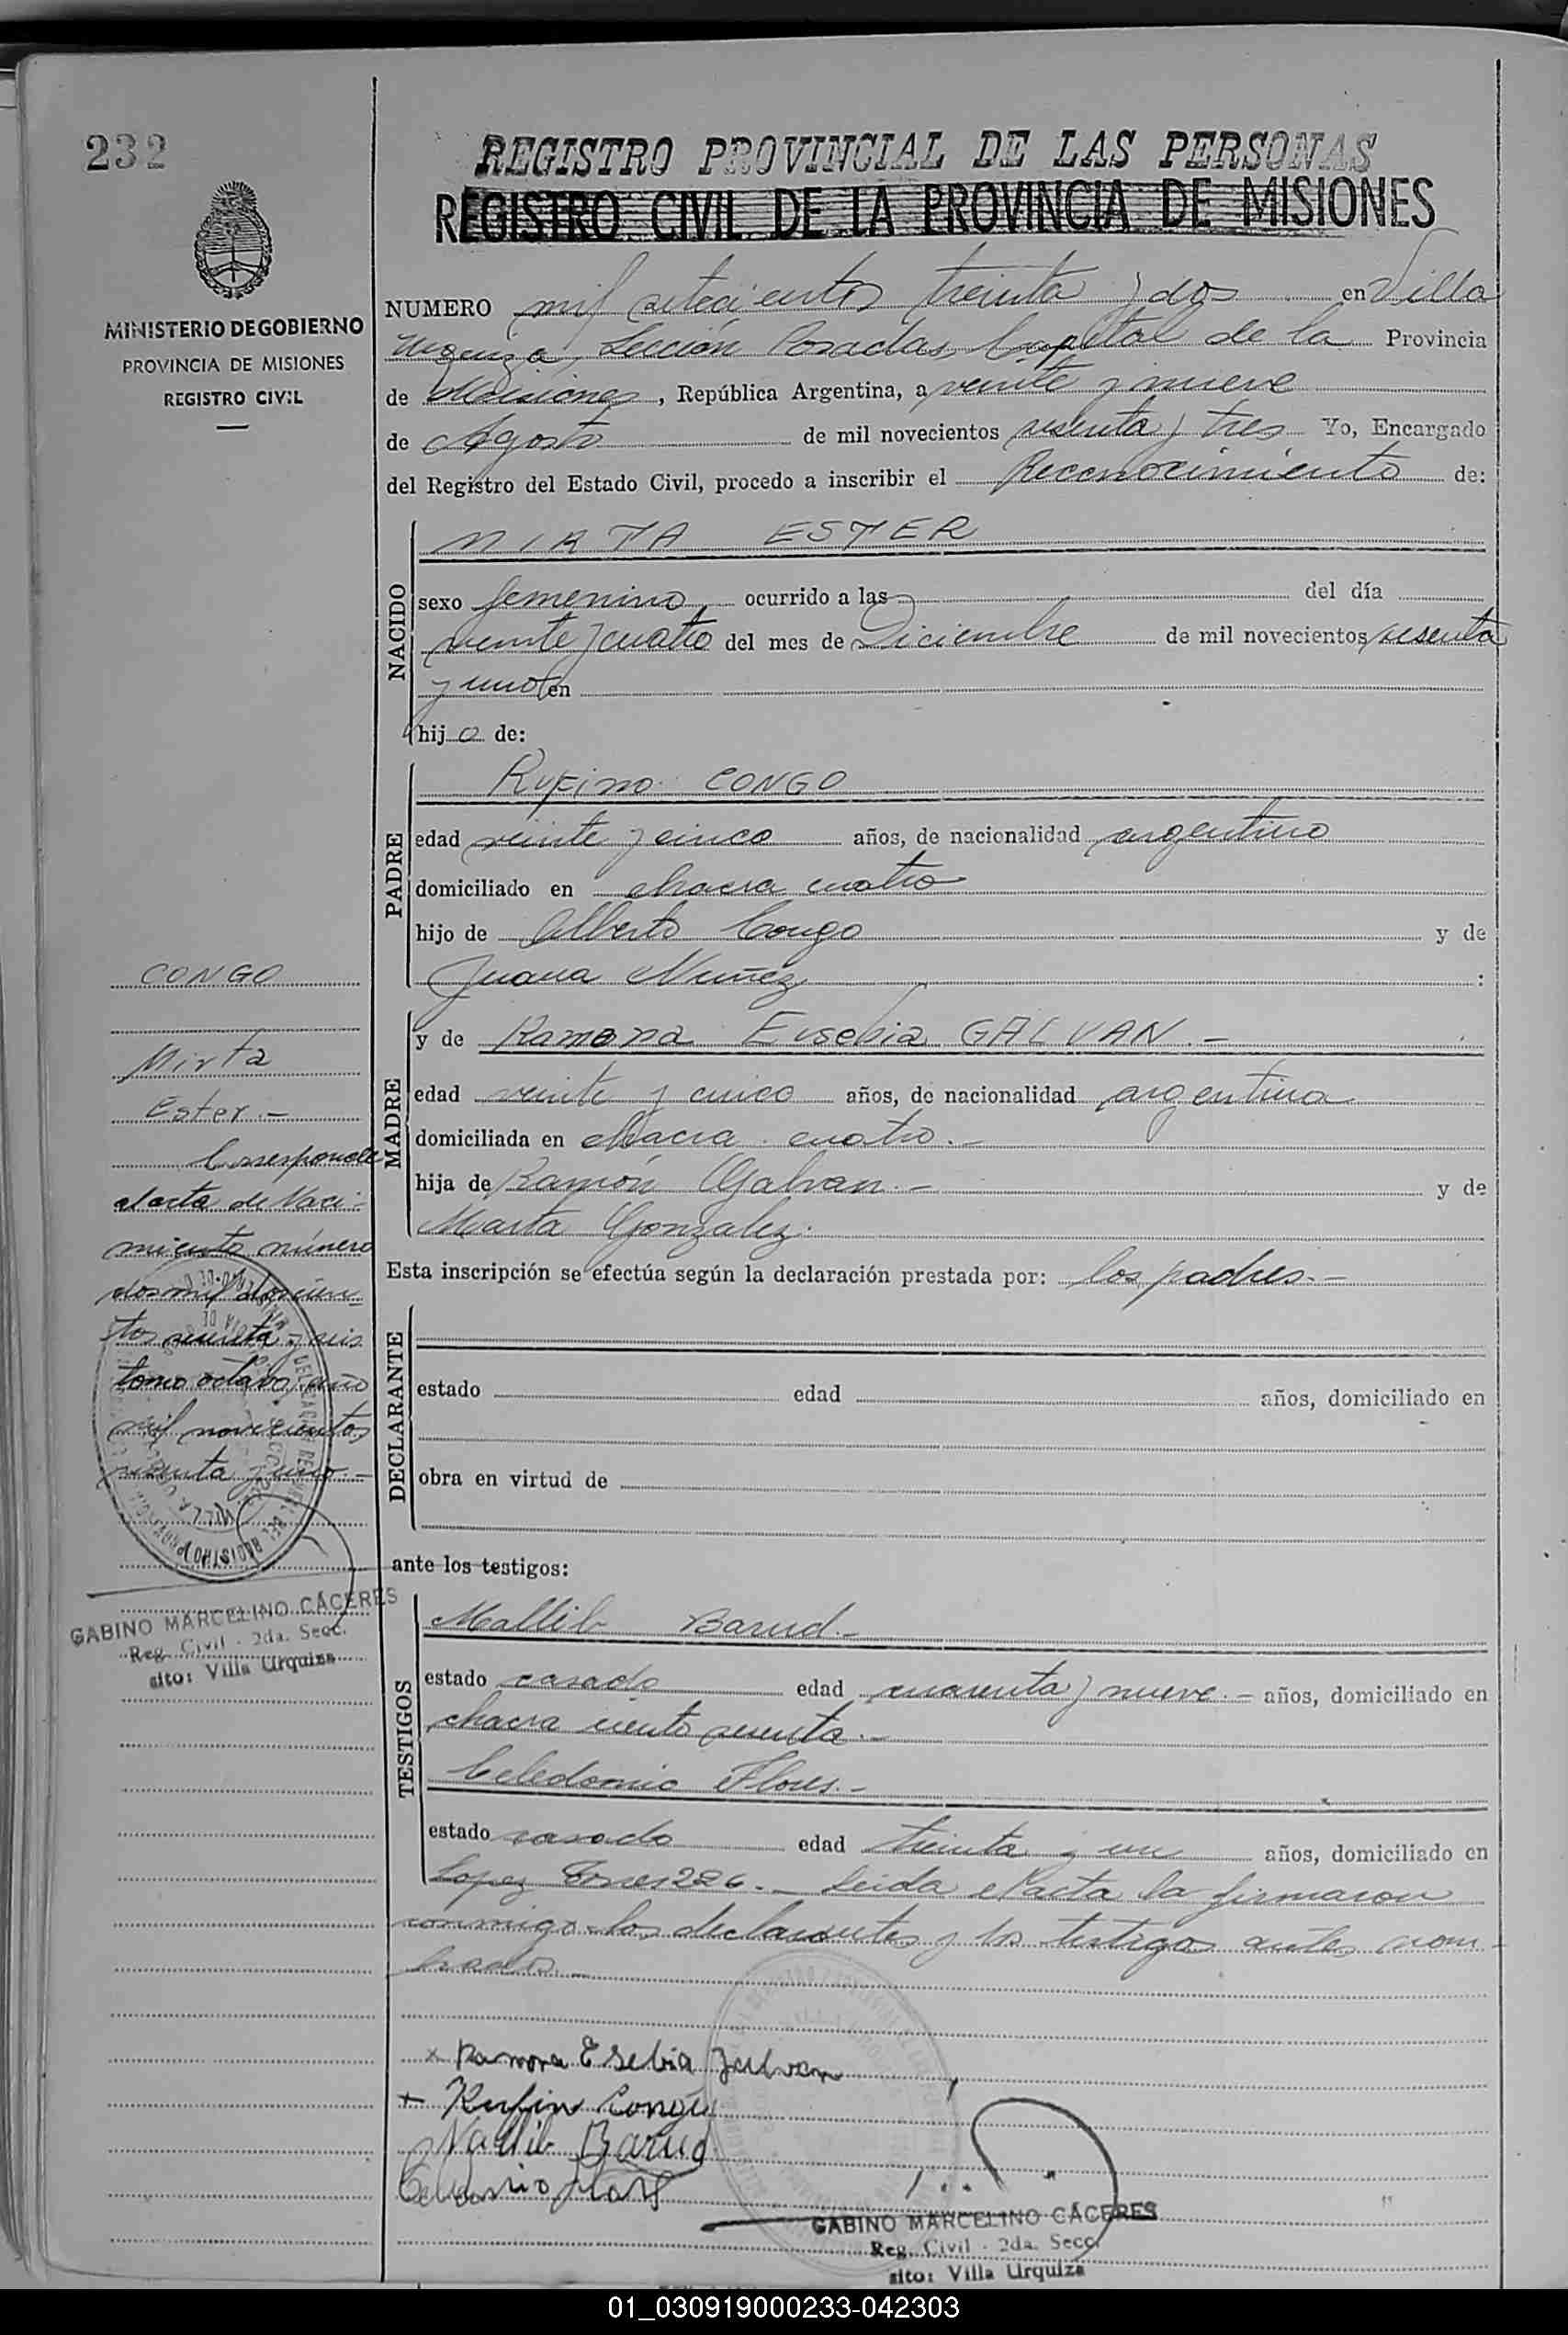 232
REGISTRO PROVINCIAL DE LAS PERSONAS
REGISTRO CIVIL DE LA PROVINCIA DE MISIONES
MINISTERIO DE GOBIERNO
PROVINCIA DE MISIONES
REGISTRO CIVIL
NUMERO mil setecientos treinta y dos en Villa
Urquiza, Sección Posadas Capital de la Provincia
de Misiones, República Argentina, a veinte y nueve
de Agosto de mil novecientos sesenta y tres Yo, Encargado
del Registro del Estado Civil, procedo a inscribir el Reconocimiento de:
NACIDO
MIRTA ESTER
sexo femenino, ocurrido a las del día
veinte y cuatro del mes de Diciembre de mil novecientos sesenta
y uno en
hija de:
PADRE
Rufino CONGO
edad veinte y cinco años, de nacionalidad argentino
domiciliado en chacra cuatro
hijo de Alberto Congo y de
Juana Nuñez
MADRE
y de Ramona Eusebia GALVAN.-
edad veinte y cinco años, de nacionalidad argentina
domiciliada en chacra cuatro.-
hija de Ramón Galvan.- y de
Marta Gonzalez.
Esta inscripción se efectúa según la declaración prestada por: los padres.-
DECLARANTE
estado edad años, domiciliado en
obra en virtud de
ante los testigos:
TESTIGOS
Mallib Barud.-
estado casado edad cuarenta y nueve.- años, domiciliado en
chacra ciento sesenta.-
Celedonio Flores.-
estado casado edad treinta y un años, domiciliado en
Lopez Torres 226.- Leida el acta la firmaron
conmigo los declarantes y los testigos antes nom-
brados.-
x Ramona Esebia Galvan
x Rufin Congo
Nallib Barud
GABINO MARCELINO CÁCERES
Reg. Civil - 2da. Secc.
sito: Villa Urquiza
CONGO
Mirta
Ester.-
Corresponde
el acta de Naci-
miento número
dos mil doscien-
tos sesenta y seis
tomo octavo, año
mil novecientos
sesenta y uno.-
GABINO MARCELINO CÁCERES
Reg. Civil - 2da. Secc.
sito: Villa Urquiza
01_030919000233-042303